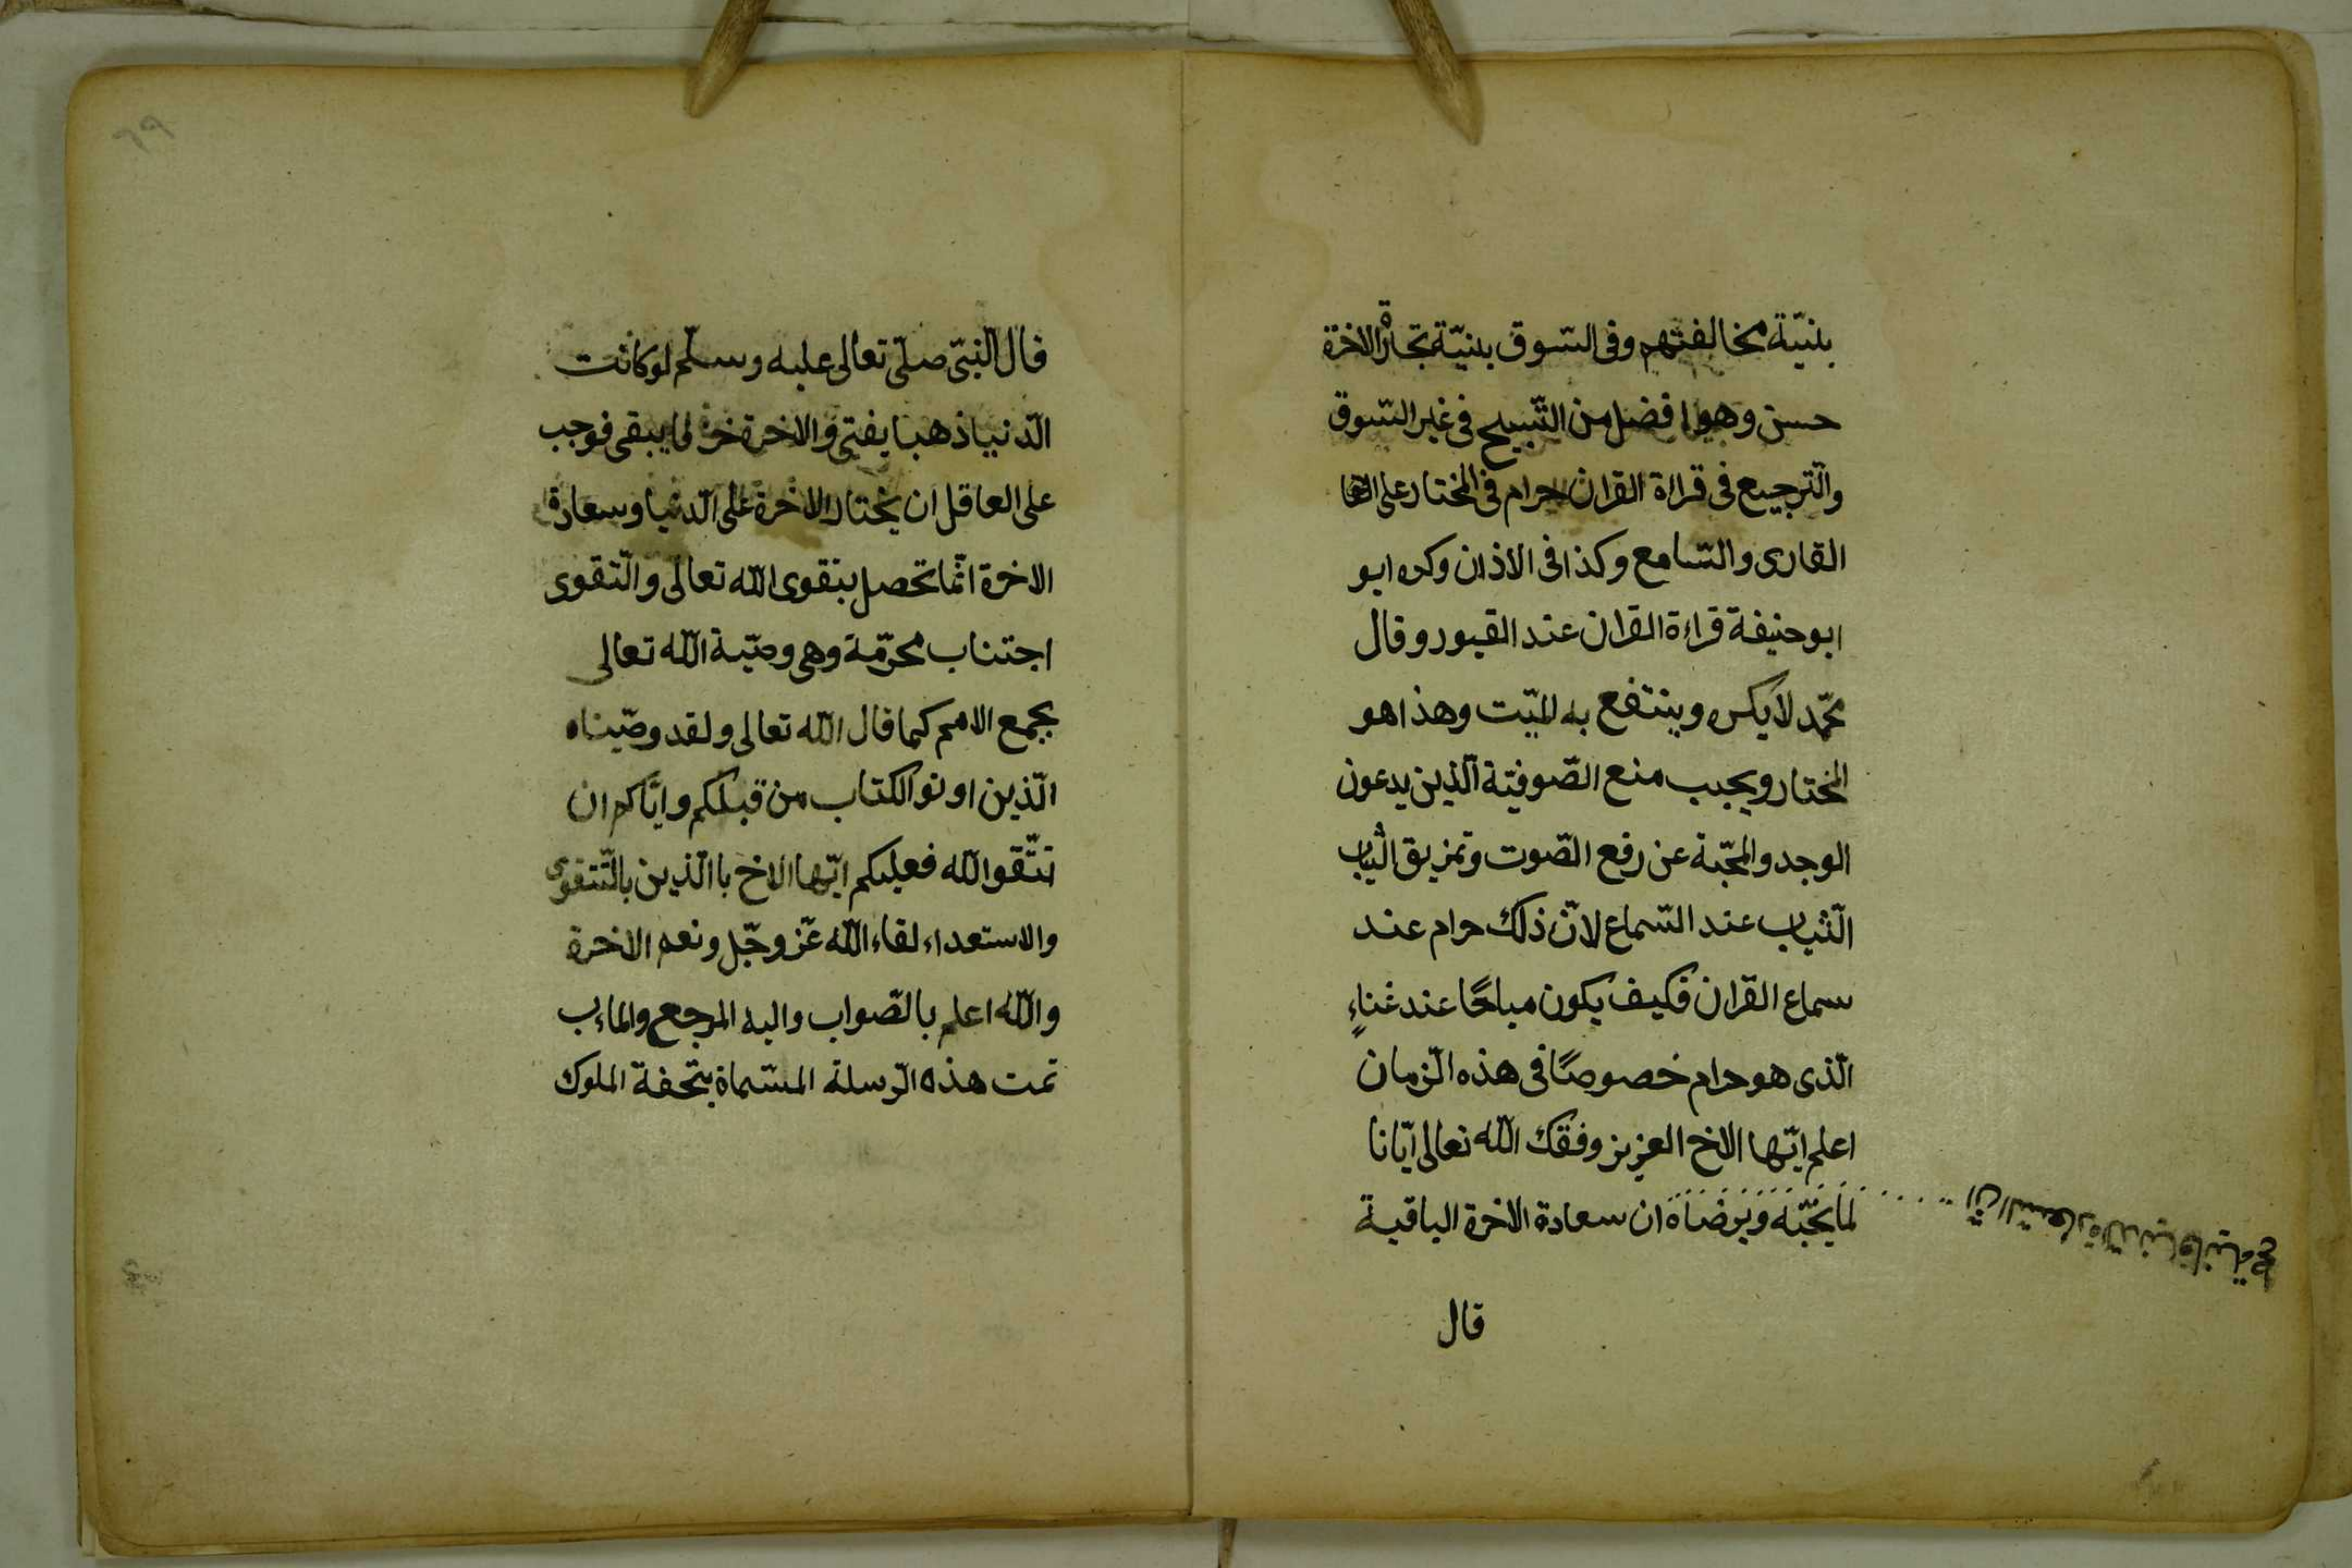 بنيّة مخالفتهم وفى السّوق بنيّة تجارة الاخرة
حسن وهو افضل من التّسبيح فى غير السّوق
والتّرجيع فى قراة القران حرام فى المختار على
القارى والسّامع وكذا فى الاذان وكره ابو
ابو حنيفة قراءة القران عند القبور وقال
محمّد لا يكره وينتفع به الميّت وهذا هو
المختار ويجب منع الصّوفيّة الّذين يدعون
الوجد والمحبّة عن رفع الصّوت وتمزيق الثّياب
الثّياب عند السّماع لانّ ذلك حرام عند
سماع القران فكيف يكون مباحًا عند غناءٍ
الّذى هو حرام خصوصًا فى هذه الزّمان
اعلم ايّها الاخ العزيز وفقك اللّه تعالى ايّانا
لما يحبّه ويرضاه ان سعادة الاخرة الباقية
انّ السّعادة الدّنيا فانية
قال
قال النّبىّ صلّى تعالى عليه وسلّم لو كانت
الدّنيا ذهبا يفنى والاخرة يبقى فوجب
على العاقل ان يختار الاخرة على الدّنيا وسعادة
الاخرة انّما تحصل بتقوى اللّه تعالى والتّقوى
اجتناب محرّمة وهى وصّية اللّه تعالى
بجمع الامم كما قال اللّه تعالى ولقد وصّيناه
الّذين اوتو الكتاب من قبلكم وايّاكم ان
تتّقو اللّه فعليكم ايّها الاخ با الّذين بالتّتقوى
والاستعداء لقاء اللّه عّز وجّل ونعم الاخرة
واللّه اعلم بالصّواب واليه المرجع والماءب
تمت هذه الرّسلة المسّماة بتحفة الملوك